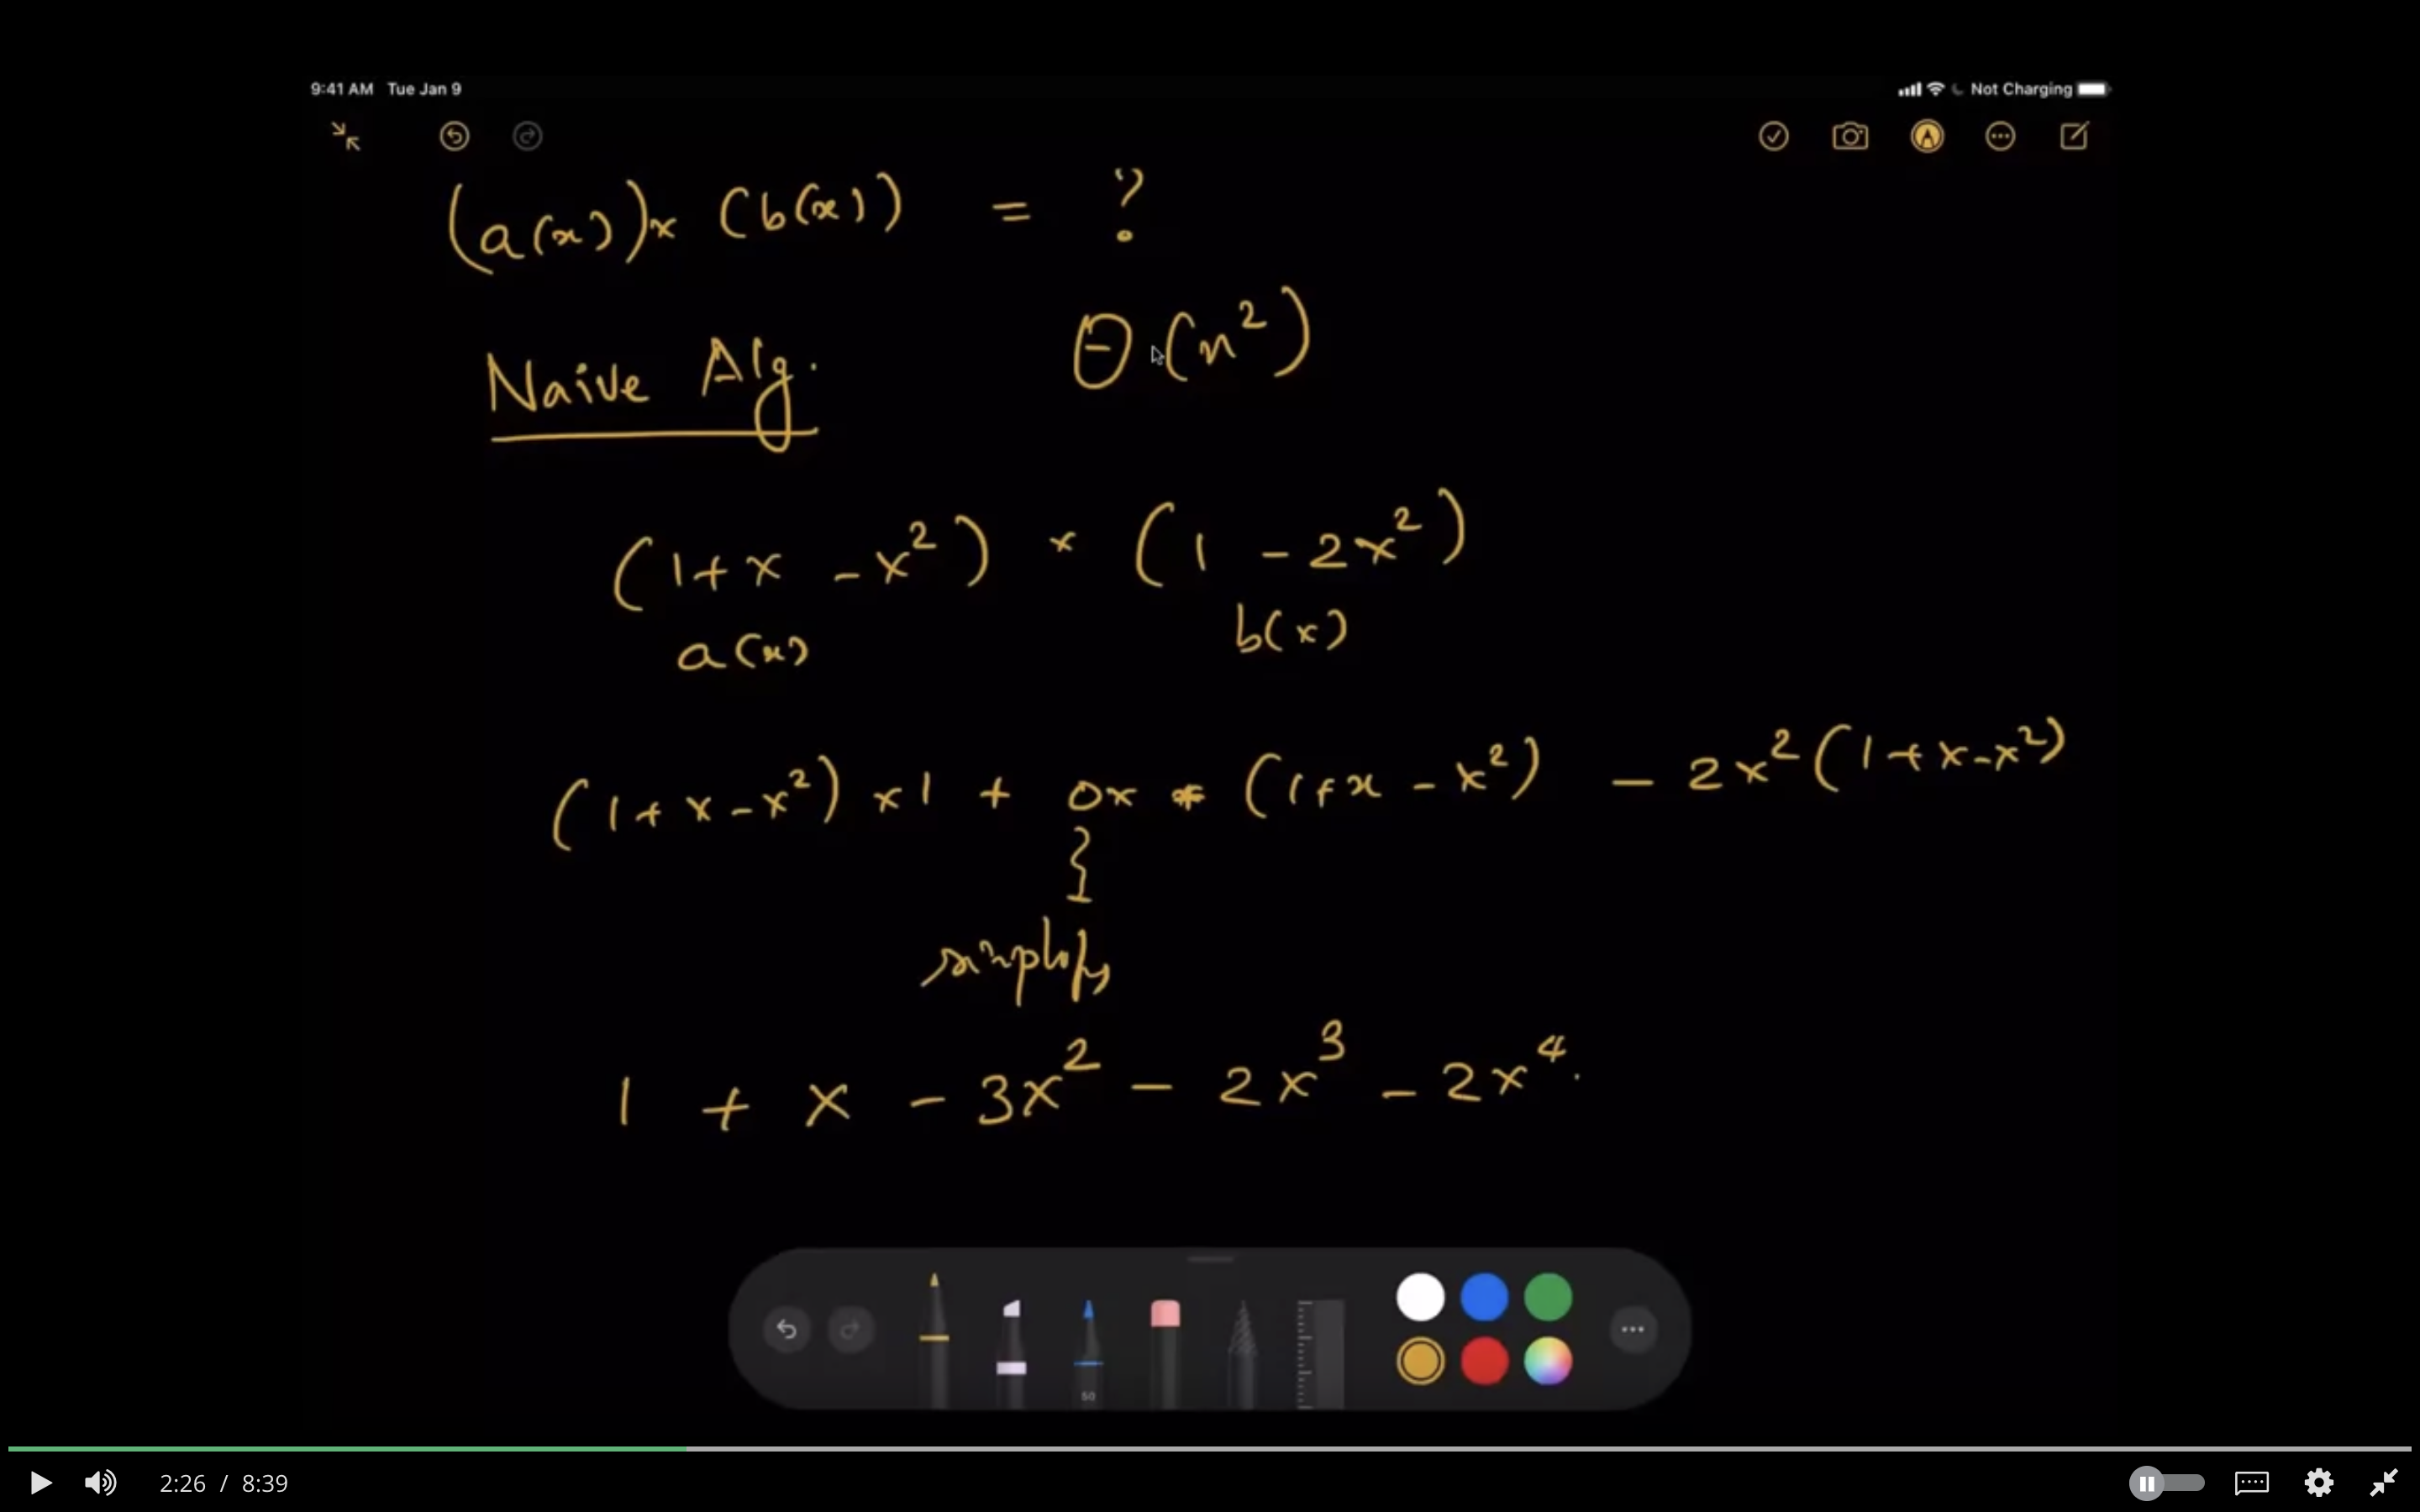 9:41 AM Tue Jan 9 Not Charging
(a(x))× (b(x)) = ?
Naive Alg. Θ(n²)
(1+x -x²) × (1 -2x²)
a(x) b(x)
(1+x-x²) ×1 + 0x * (1+x -x²) - 2x²(1+x-x²)
simplify
1 + x - 3x² - 2x³ - 2x⁴.
50
2:26 / 8:39